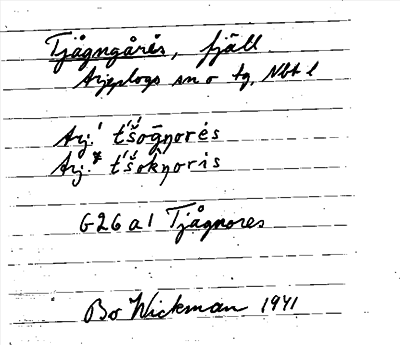 Tjågngårés, fjäll.
Arjeplogs sn o tg, Nbt l
Arj.¹ t́šoḡŋorés
Arj.² t́šokŋoris
G26 a 1 Tjågnores
Bo Wickman 1941